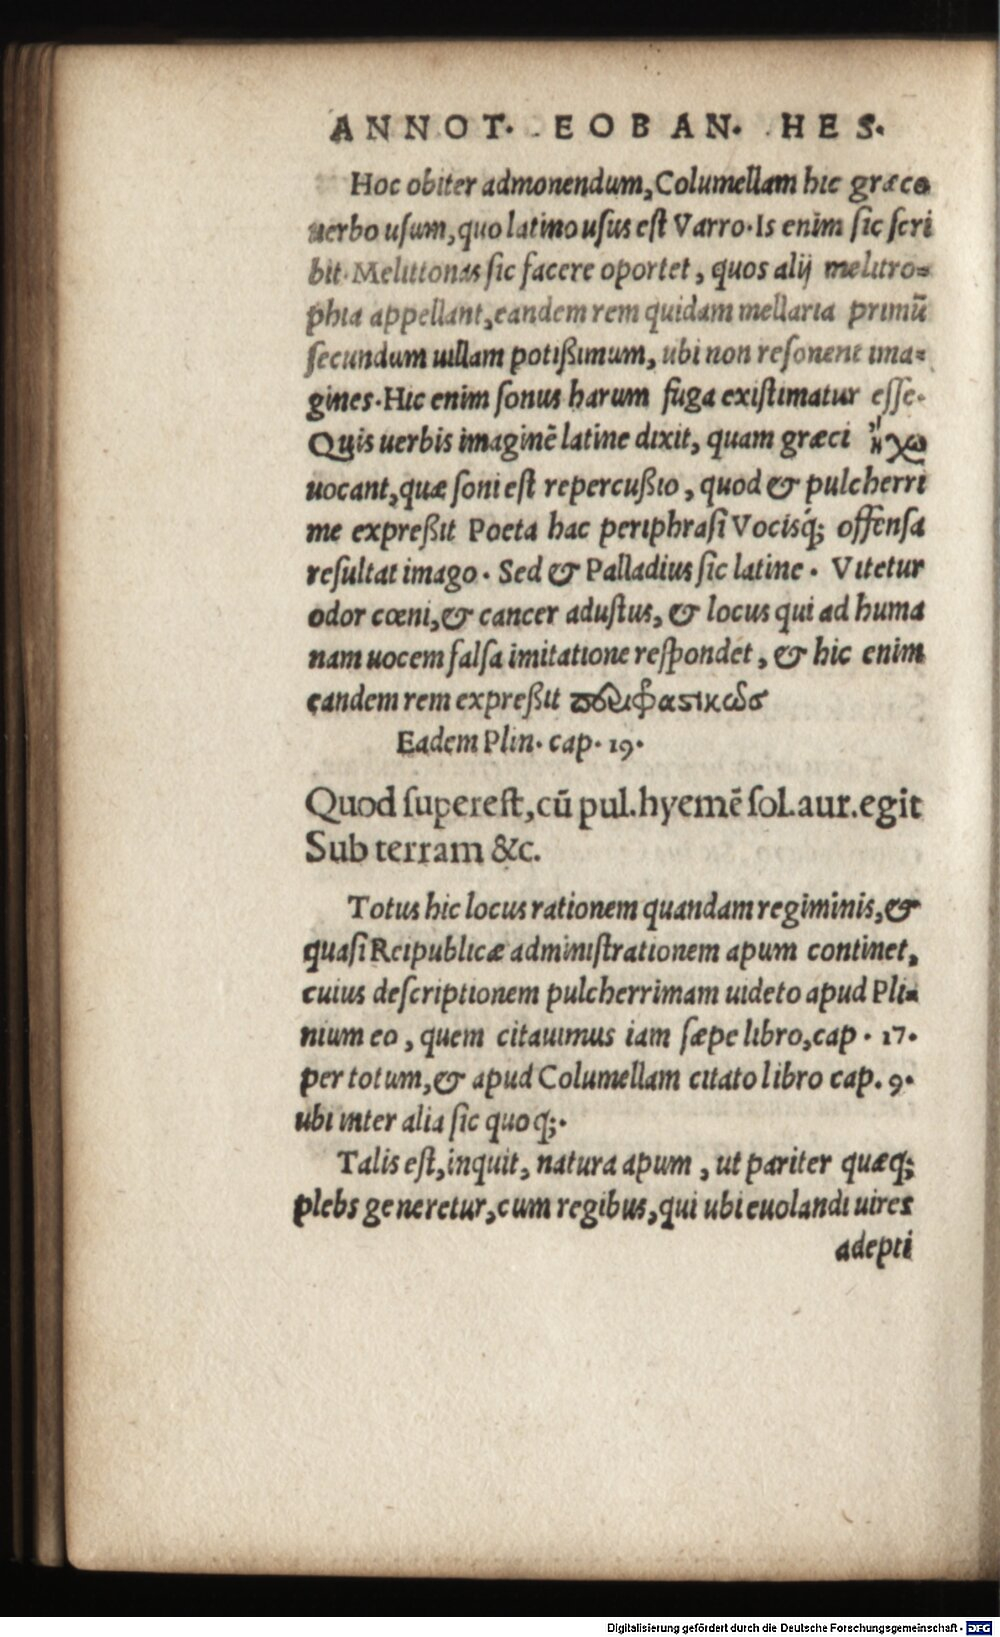 ANNOT. EOBAN. HES.
Hoc obiter admonendum, Columellam hic græco
uerbo uſum, quo latino uſus eſt Varro. Is enim ſic ſcri
bit. Melittonas ſic facere oportet, quos alij melitro=
phia appellant, eandem rem quidam mellaria primū
ſecundum uillam potiſſimum, ubi non reſonent ima=
gines. Hic enim ſonus harum fuga exiſtimatur eſſe.
Quis uerbis imaginē latine dixit, quam græci ἠχὼ
uocant, quæ ſoni eſt repercußio, quod & pulcherri
me expreßit Poeta hac periphraſi Vocisq́; offenſa
reſultat imago. Sed & Palladius ſic latine. Vitetur
odor cœni, & cancer aduſtus, & locus qui ad huma
nam uocem falſa imitatione reſpondet, & hic enim
eandem rem expreßit
Eadem Plin. cap. 19.
Quod ſupereſt, cū pul. hyemē ſol. aur. egit
Sub terram &c.
Totus hic locus rationem quandam regiminis, &
quaſi Reipublicæ adminiſtrationem apum continet,
cuius deſcriptionem pulcherrimam uideto apud Pli=
nium eo, quem citauimus iam ſæpe libro, cap. 17.
per totum, & apud Columellam citato libro cap. 9.
ubi inter alia ſic quoq;.
Talis eſt, inquit, natura apum, ut pariter quæq;
plebs generetur, cum regibus, qui ubi euolandi uires
adepti
Digitalisierung gefördert durch die Deutsche Forschungsgemeinschaft - DFG